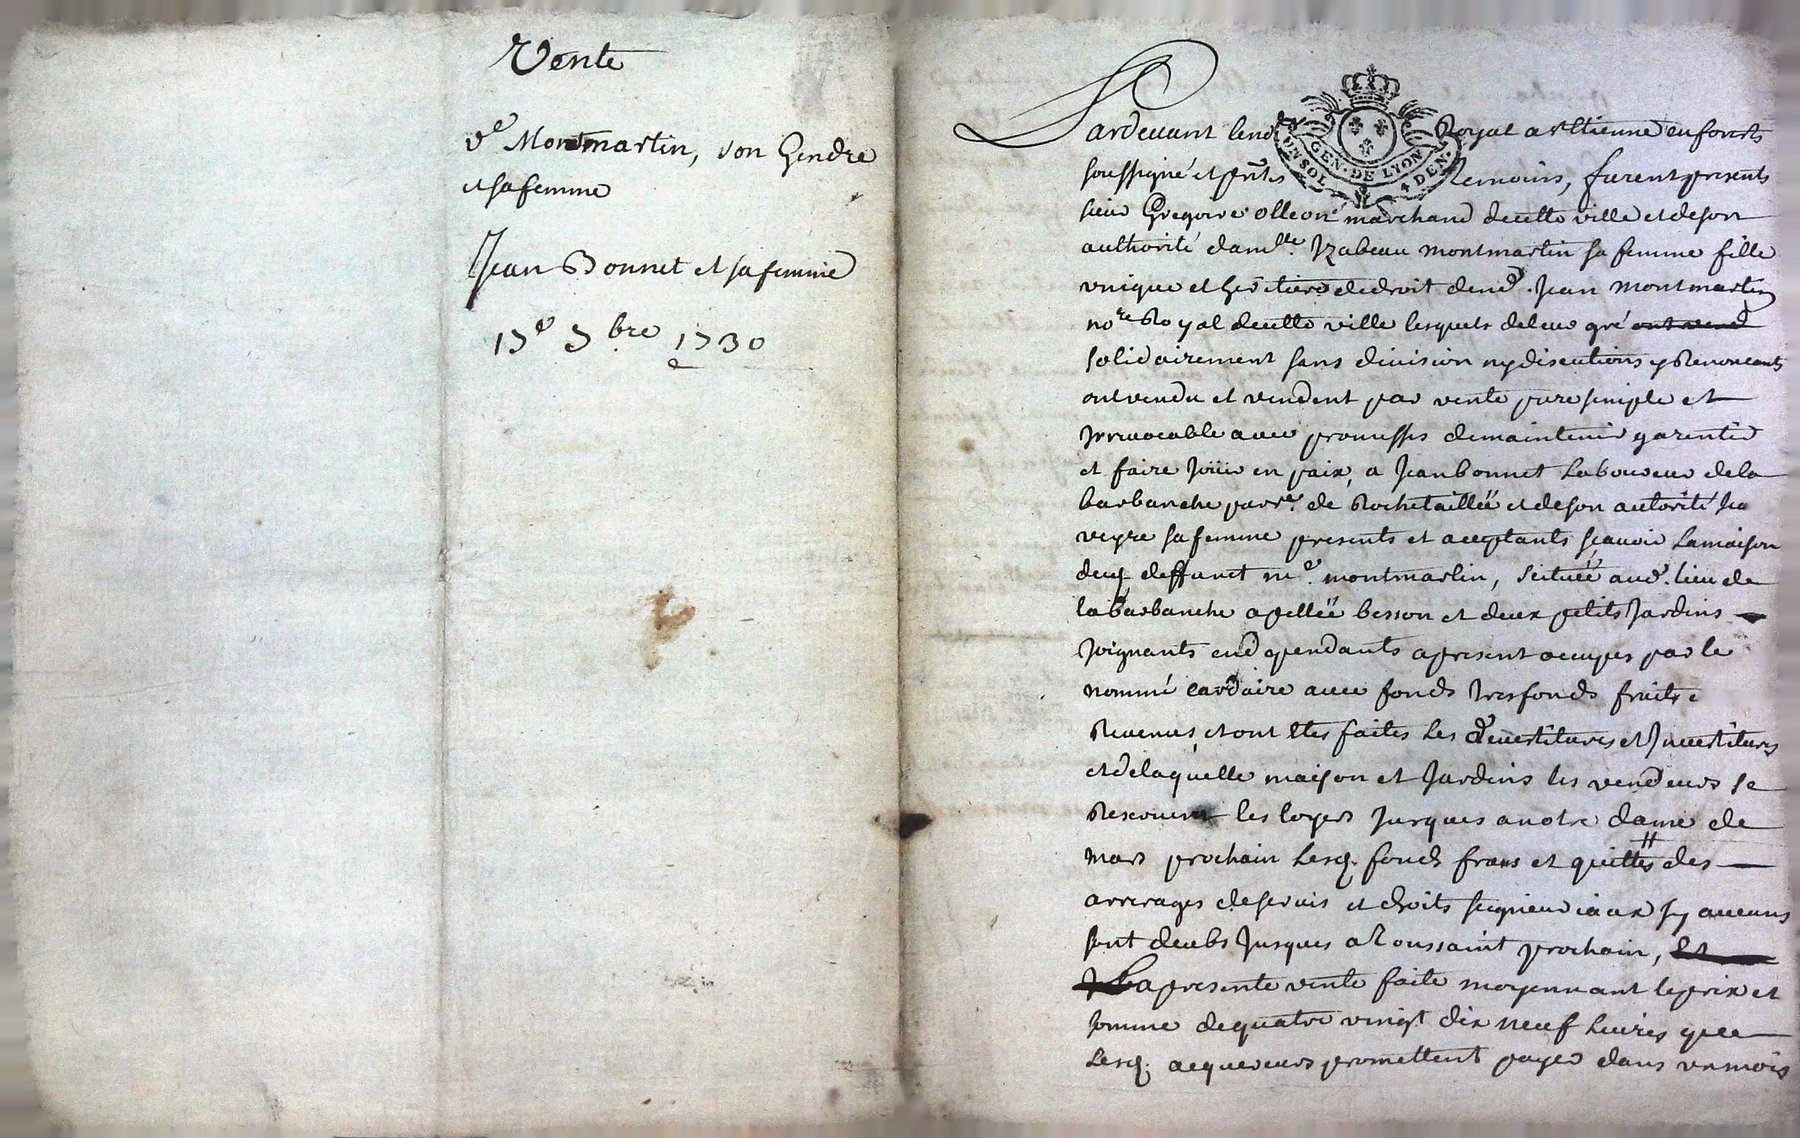 Vente
Dᵉ Montmartin, son Gendre
et sa femme
Jean Bonnet et sa femme
17ᵉ 7bre 1730
Pardevant le no Royal a st Etienne en forests
soussigné et pnts temoins, furent presents
sieur Gregoire olleon marchand de cette ville et de son
authorité damlle. Izabeau montmartin sa femme fille
unique et heritiere de droit de med. Jean montmartin
nore Royal de cette ville lesquels de leur gré ont vend
solidairement sans division ny discutions y Renoncants
ont vendu et vendent par vente pure simple et
Irrevocable avec promesses de maintenir garentir
et faire Joüir en paix, a Jean bonnet Laboureur de la
barbanche parre. de Rochetaillée et de son autorité
veyre sa femme presents et aceptants scavoir La maison
dud. deffunct me. montmartin, scituée aud. lieu de
la barbanche apellée besson et deux petits Jardins
Joignants end ependants a present occupes par le
nommé cardaire avec fonds tresfonds fruits
Revenus, et ont Etes faites Les devestitures et Investitures
et de laquelle maison et Jardins les vendeurs se
Reservent les loyers Jusques a notre dame de
mars prochain Lesq. fonds frans et quittes des
arrerages de servis et droits seigneuriaux sy aucuns
sont deubs Jusques a Toussaint prochain, Et
La presente vente faite moyennant le prix et
somme de quatre vingt dix neuf Livres que
Lesq. acquereurs promettent payer dans un mois
GEN. DE LYON
UN SOL 4 DEN.